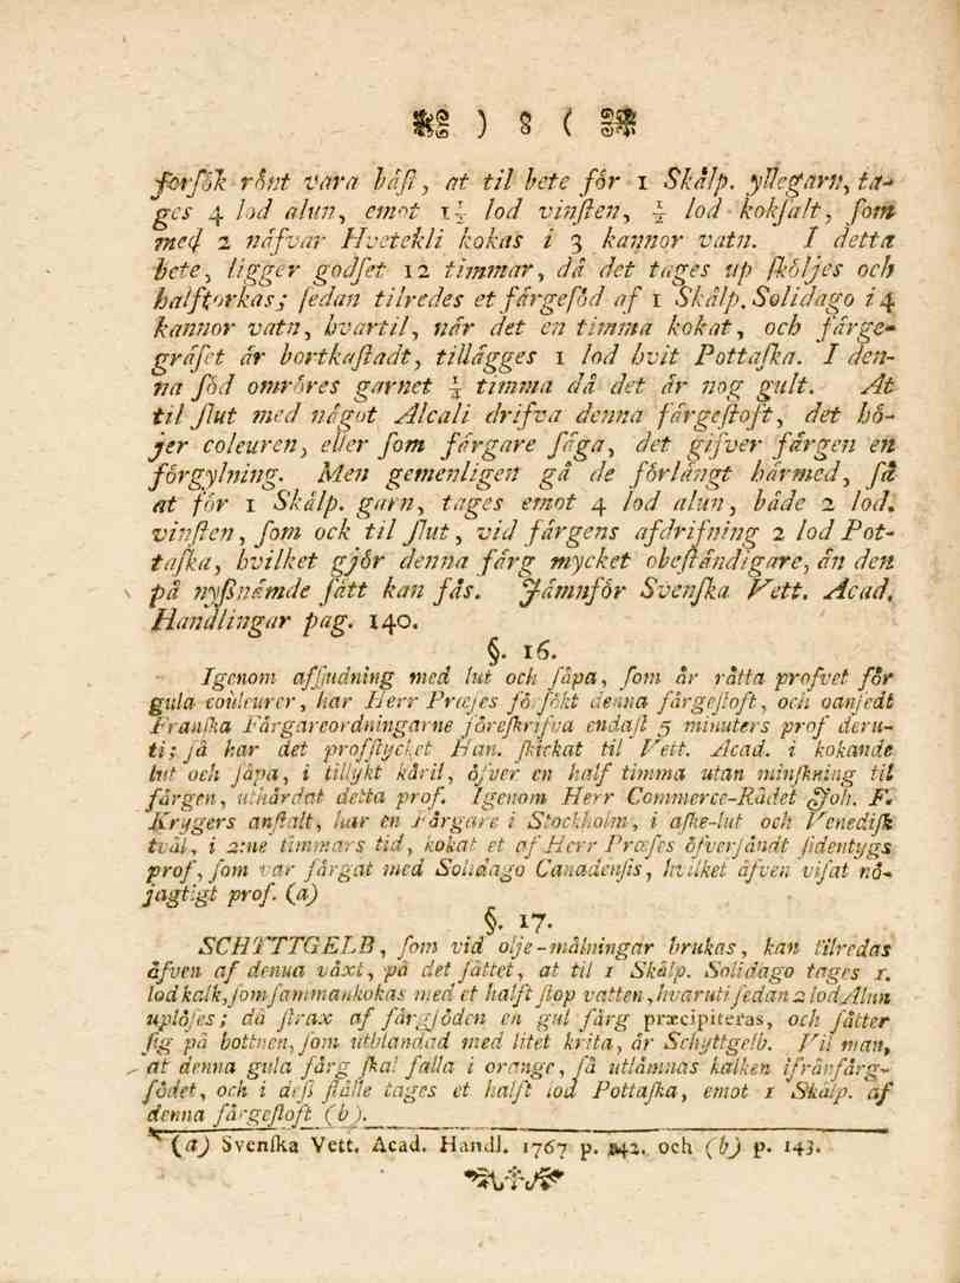 ) 8 (
försök rönt vara bäst, at til bete för 1 Skålp. yllegarn, ta-
ges 4 lod alun, emot 1½ lod vinsten, ½ lod koksalt, som
med 2 näfvar Hvetekli kokas i 3 kannor vatn. I detta
bete, ligger godset 12 timmar, då det tages up sköljes och
halftorkas; sedan tilredes et färgesöd af 1 Skålp. Solidago i 4
kannor vatn, hvartil, når det en timma kokat, och färge-
gräset är bortkastadt, tillägges 1 lod hvit Pottaska. I den-
na söd omröres garnet timma då det är nog gult. At
til slut med något Alcali drifva denna färgestoft, det hö-
jer coleuren, eller som färgare säga, det gifver färgen en
förgylning. Men gemenligen gå de förlångt härmed, så
at för 1 Skålp. garn, tages emot 4 lod alun, både 2 lod.
vinsten, som ock til slut, vid färgens afdrifning 2 lod Pot-
taska, hvilket gjör denna färg mycket obeständigare, än den
på nyssnämde sätt kan fås. Jämnför Svenska Vett. Acad.
Handlingar pag. 140.
§. 16.
Igenom afsjudning med lut och såpa, som är rätta profvet för
gula couleurer, har Herr Præses försökt denna färgestoft, och oansedt
Franska Färgareordningarne föreskrifva endast 5 minuters prof deru-
ti; så har det profstycket Han. skickat til Vett. Acad. i kokande
lut och såpa, i tillykt käril, öfver en half timma utan minskning til
färgen, uthärdat detta prof. Igenom Herr Commerce-Rådet Joh. F.
Krygers anstalt, har en Färgare i Stockholm, i aske-lut och Venedisk
tvål, i 2:ne timmars tid, kokat et af Herr Præses öfversändt sidentygs
prof, som var färgat med Solidago Canadensis, hvilket äfven visat nö-
jagtigt prof. (a)
§. 17.
SCHYTTGELB, som vid olje-målningar brukas, kan tilredas
äfven af denna växt, på det sättet, at til 1 Skålp. Solidago tages 1.
lod kalk, som sammankokas med et halft stop vatten, hvaruti sedan 2 lod Alun
uplöses; då strax af färgsöden en gul färg præcipiteras, och sätter
sig på bottnen, som utblandad med litet krita, är Schyttgelb. Vil man,
at denna gula färg skal falla i orange, så utlämnas kalken ifrån färg-
södet, och i dess ställe tages et halft lod Pottaska, emot 1 Skålp. af
denna färgestoft (b).
(a) Svenska Vett. Acad. Handl. 1767 p. 142. och (b) p. 143.